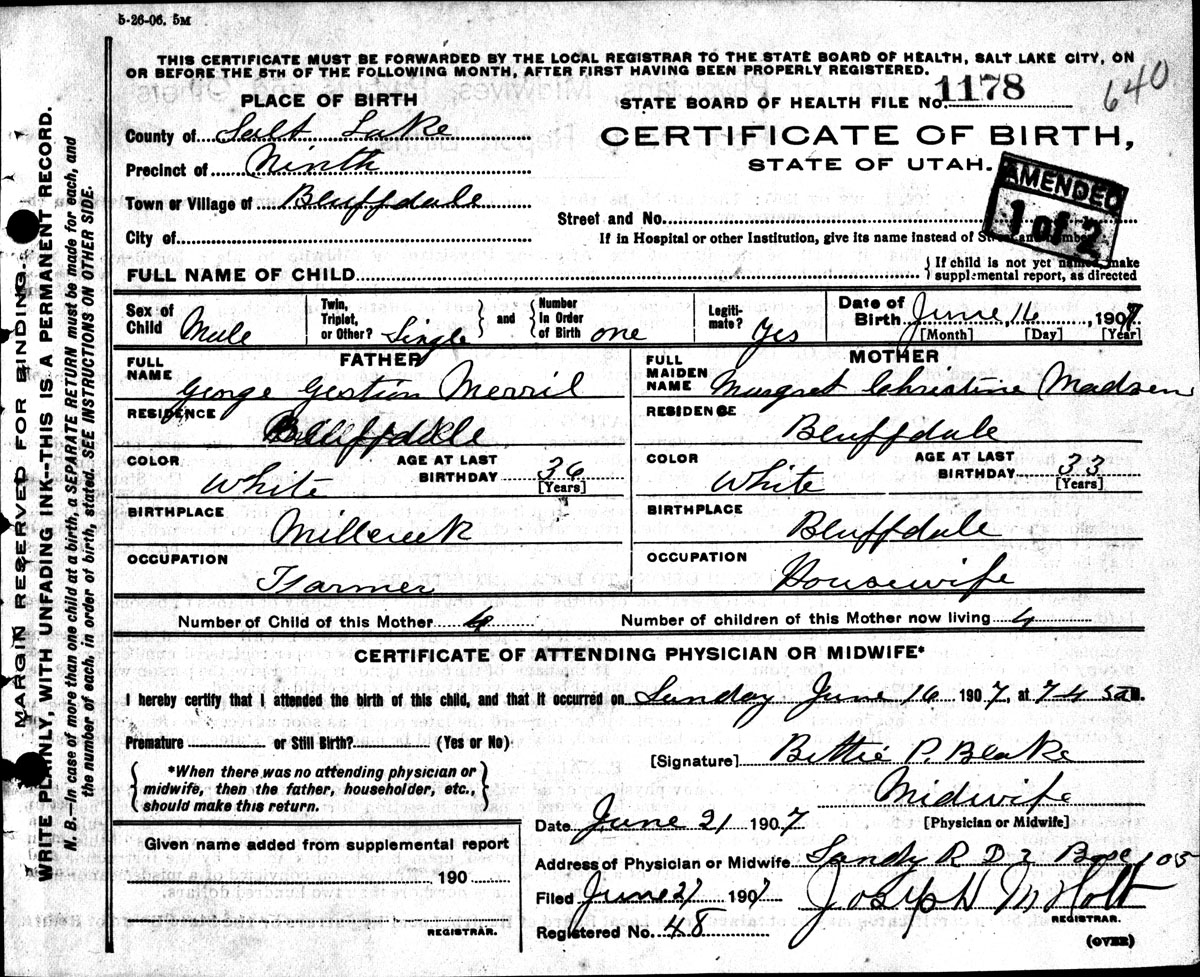 5-26-06. 5M
THIS CERTIFICATE MUST BE FORWARDED BY THE LOCAL REGISTRAR TO THE STATE BOARD OF HEALTH, SALT LAKE CITY, ON
OR BEFORE THE 5TH OF THE FOLLOWING MONTH, AFTER FIRST HAVING BEEN PROPERLY REGISTERED.
640
PLACE OF BIRTH
STATE BOARD OF HEALTH FILE No. 1178
County of Salt Lake
CERTIFICATE OF BIRTH,
Precinct of Ninth
STATE OF UTAH.
AMENDED
1 of 2
Town or Village of Bluffdale
Street and No.
City of
If in Hospital or other Institution, give its name instead of Street and Number
FULL NAME OF CHILD
If child is not yet named, make
supplemental report, as directed
Sex of Child Male
Twin, Triplet, or Other? Single and Number In Order of Birth one
Legitimate? Yes
Date of Birth June, 16, 1907
[Month] [Day] [Year]
FATHER
FULL NAME George Gestion Merril
RESIDENCE Bluffdale
COLOR White
AGE AT LAST BIRTHDAY 36
[Years]
BIRTHPLACE Millcreek
OCCUPATION Farmer
MOTHER
FULL MAIDEN NAME Margret Christine Madsen
RESIDENCE Bluffdale
COLOR White
AGE AT LAST BIRTHDAY 33
[Years]
BIRTHPLACE Bluffdale
OCCUPATION Housewife
Number of Child of this Mother 4
Number of children of this Mother now living 4
CERTIFICATE OF ATTENDING PHYSICIAN OR MIDWIFE*
I hereby certify that I attended the birth of this child, and that it occurred on Sunday June 16 1907, at 7 45 am.
Premature or Still Birth? (Yes or No)
*When there was no attending physician or
midwife, then the father, householder, etc.,
should make this return.
[Signature] Bettie P. Blake
Midwife
[Physician or Midwife]
Date June 21 1907
Given name added from supplemental report
190
REGISTRAR.
Address of Physician or Midwife Sandy R D 2 Box 105
Filed June 21 1907 Joseph M Holt
REGISTRAR.
Registered No. 48
(OVER)
MARGIN RESERVED FOR BINDING.
WRITE PLAINLY, WITH UNFADING INK--THIS IS A PERMANENT RECORD.
N. B.—In case of more than one child at a birth, a SEPARATE RETURN must be made for each, and
the number of each, in order of birth, stated. SEE INSTRUCTIONS ON OTHER SIDE.